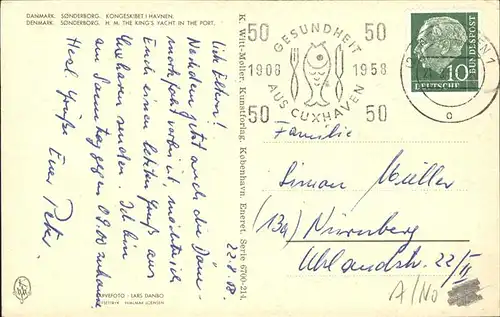 DANMARK. SØNDERBORG. KONGESKIBET I HAVNEN.
DENMARK. SØNDERBORG. H. M. THE KING'S YACHT IN THE PORT.
22.8.58
Liebe Eltern!
Nachdem jetzt auch die Däne-
markfahrt vorbei ist, möchte ich
Euch einen letzten Gruß aus
Cuxhaven senden. Ich bin
am Samstag gegen 09.00 zuhause
Herzl. Grüße Euer Peter
FARVEFOTO: LARS DANBO
HJALMAR JOENSEN
K. Witt-Møller. Kunstforlag. København. Eneret. Serie 6700-214.
50 GESUNDHEIT 50
1908 1958
50 AUS CUXHAVEN 50
10
DEUTSCHE
BUNDESPOST
Familie
Simon Müller
(13a) Nürnberg
Uhlandstr. 22/II